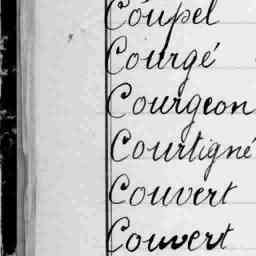 Coupel
Courgé
Courgeon
Courtigné
Couvert
Couvert